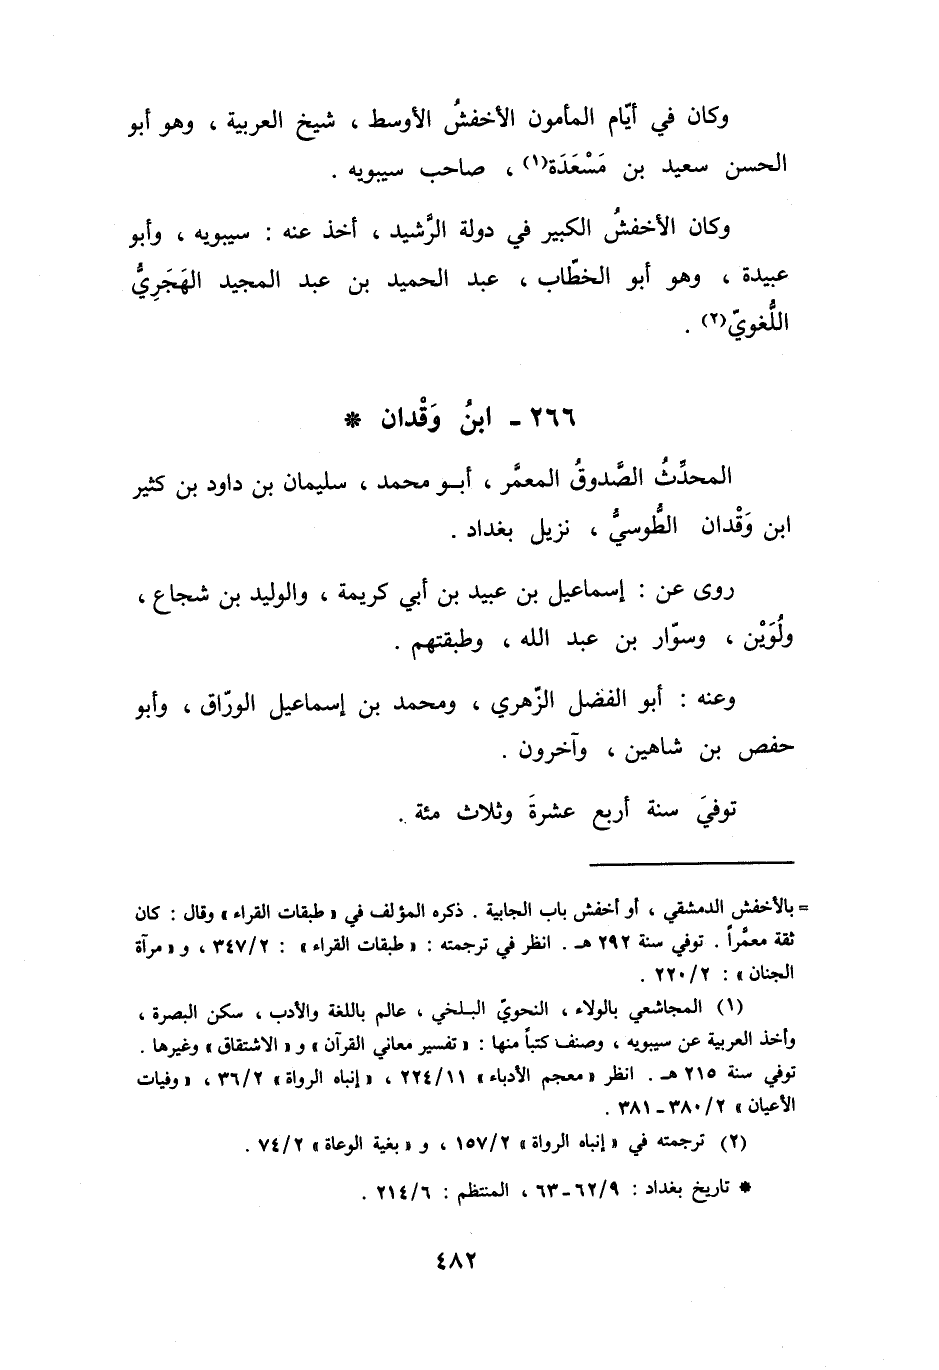 وكان في أيّام المأمون الأخفشُ الأوسط ، شيخ العربية ، وهو أبو
الحسن سعيد بن مَسْعَدَة(١) ، صاحب سيبويه .
وكان الأخفشُ الكبير في دولة الرَّشيد ، أخذ عنه : سيبويه ، وأبو
عبيدة ، وهو أبو الخطّاب ، عبد الحميد بن عبد المجيد الهَجَرِيُّ
اللُّغويّ(٢) .
٢٦٦ - ابنُ وَقْدان *
المحدِّثُ الصَّدوقُ المعمَّر ، أبو محمد ، سليمان بن داود بن كثير
ابن وَقْدان الطُّوسيُّ ، نزيل بغداد .
روى عن : إسماعيل بن عبيد بن أبي كريمة ، والوليد بن شجاع ،
ولُوَيْن ، وسوّار بن عبد الله ، وطبقتهم .
وعنه : أبو الفضل الزّهري ، ومحمد بن إسماعيل الورّاق ، وأبو
حفص بن شاهين ، وآخرون .
توفيَ سنة أربع عشرةَ وثلاث مئة .
= بالأخفش الدمشقي ، أو أخفش باب الجابية . ذكره المؤلف في « طبقات القراء » وقال : كان
ثقة معمَّراً . توفي سنة ٢٩٢ هـ . انظر في ترجمته : « طبقات القراء » : ٣٤٧/٢ ، و « مرآة
الجنان » : ٢٢٠/٢ .
(١) المجاشعي بالولاء ، النحويّ البلخي ، عالم باللغة والأدب ، سكن البصرة ،
وأخذ العربية عن سيبويه ، وصنف كتباً منها : « تفسير معاني القرآن » و « الاشتقاق » وغيرها .
توفي سنة ٢١٥ هـ . انظر « معجم الأدباء » ٢٢٤/١١ ، « إنباه الرواة » ٣٦/٢ ، « وفيات
الأعيان » ٣٨٠/٢ - ٣٨١ .
(٢) ترجمته في « إنباه الرواة » ١٥٧/٢ ، و « بغية الوعاة » ٧٤/٢ .
* تاريخ بغداد : ٦٢/٩ - ٦٣ ، المنتظم : ٢١٤/٦ .
٤٨٢